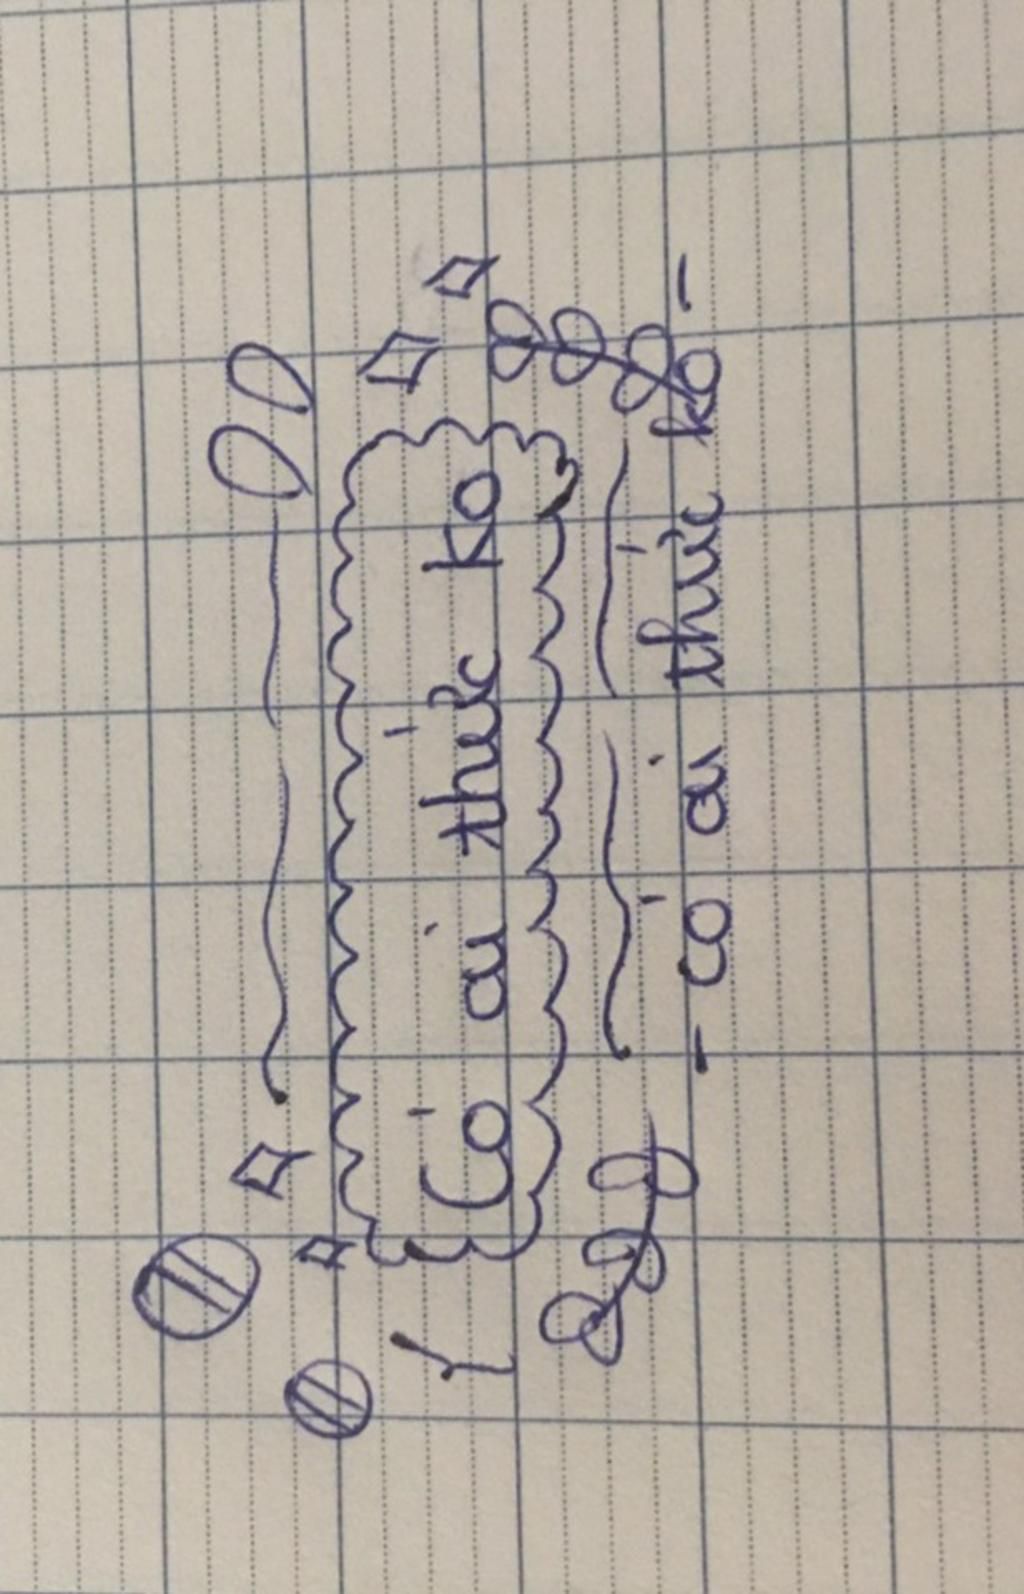 Có ai thức ko
- có ai thức ko -